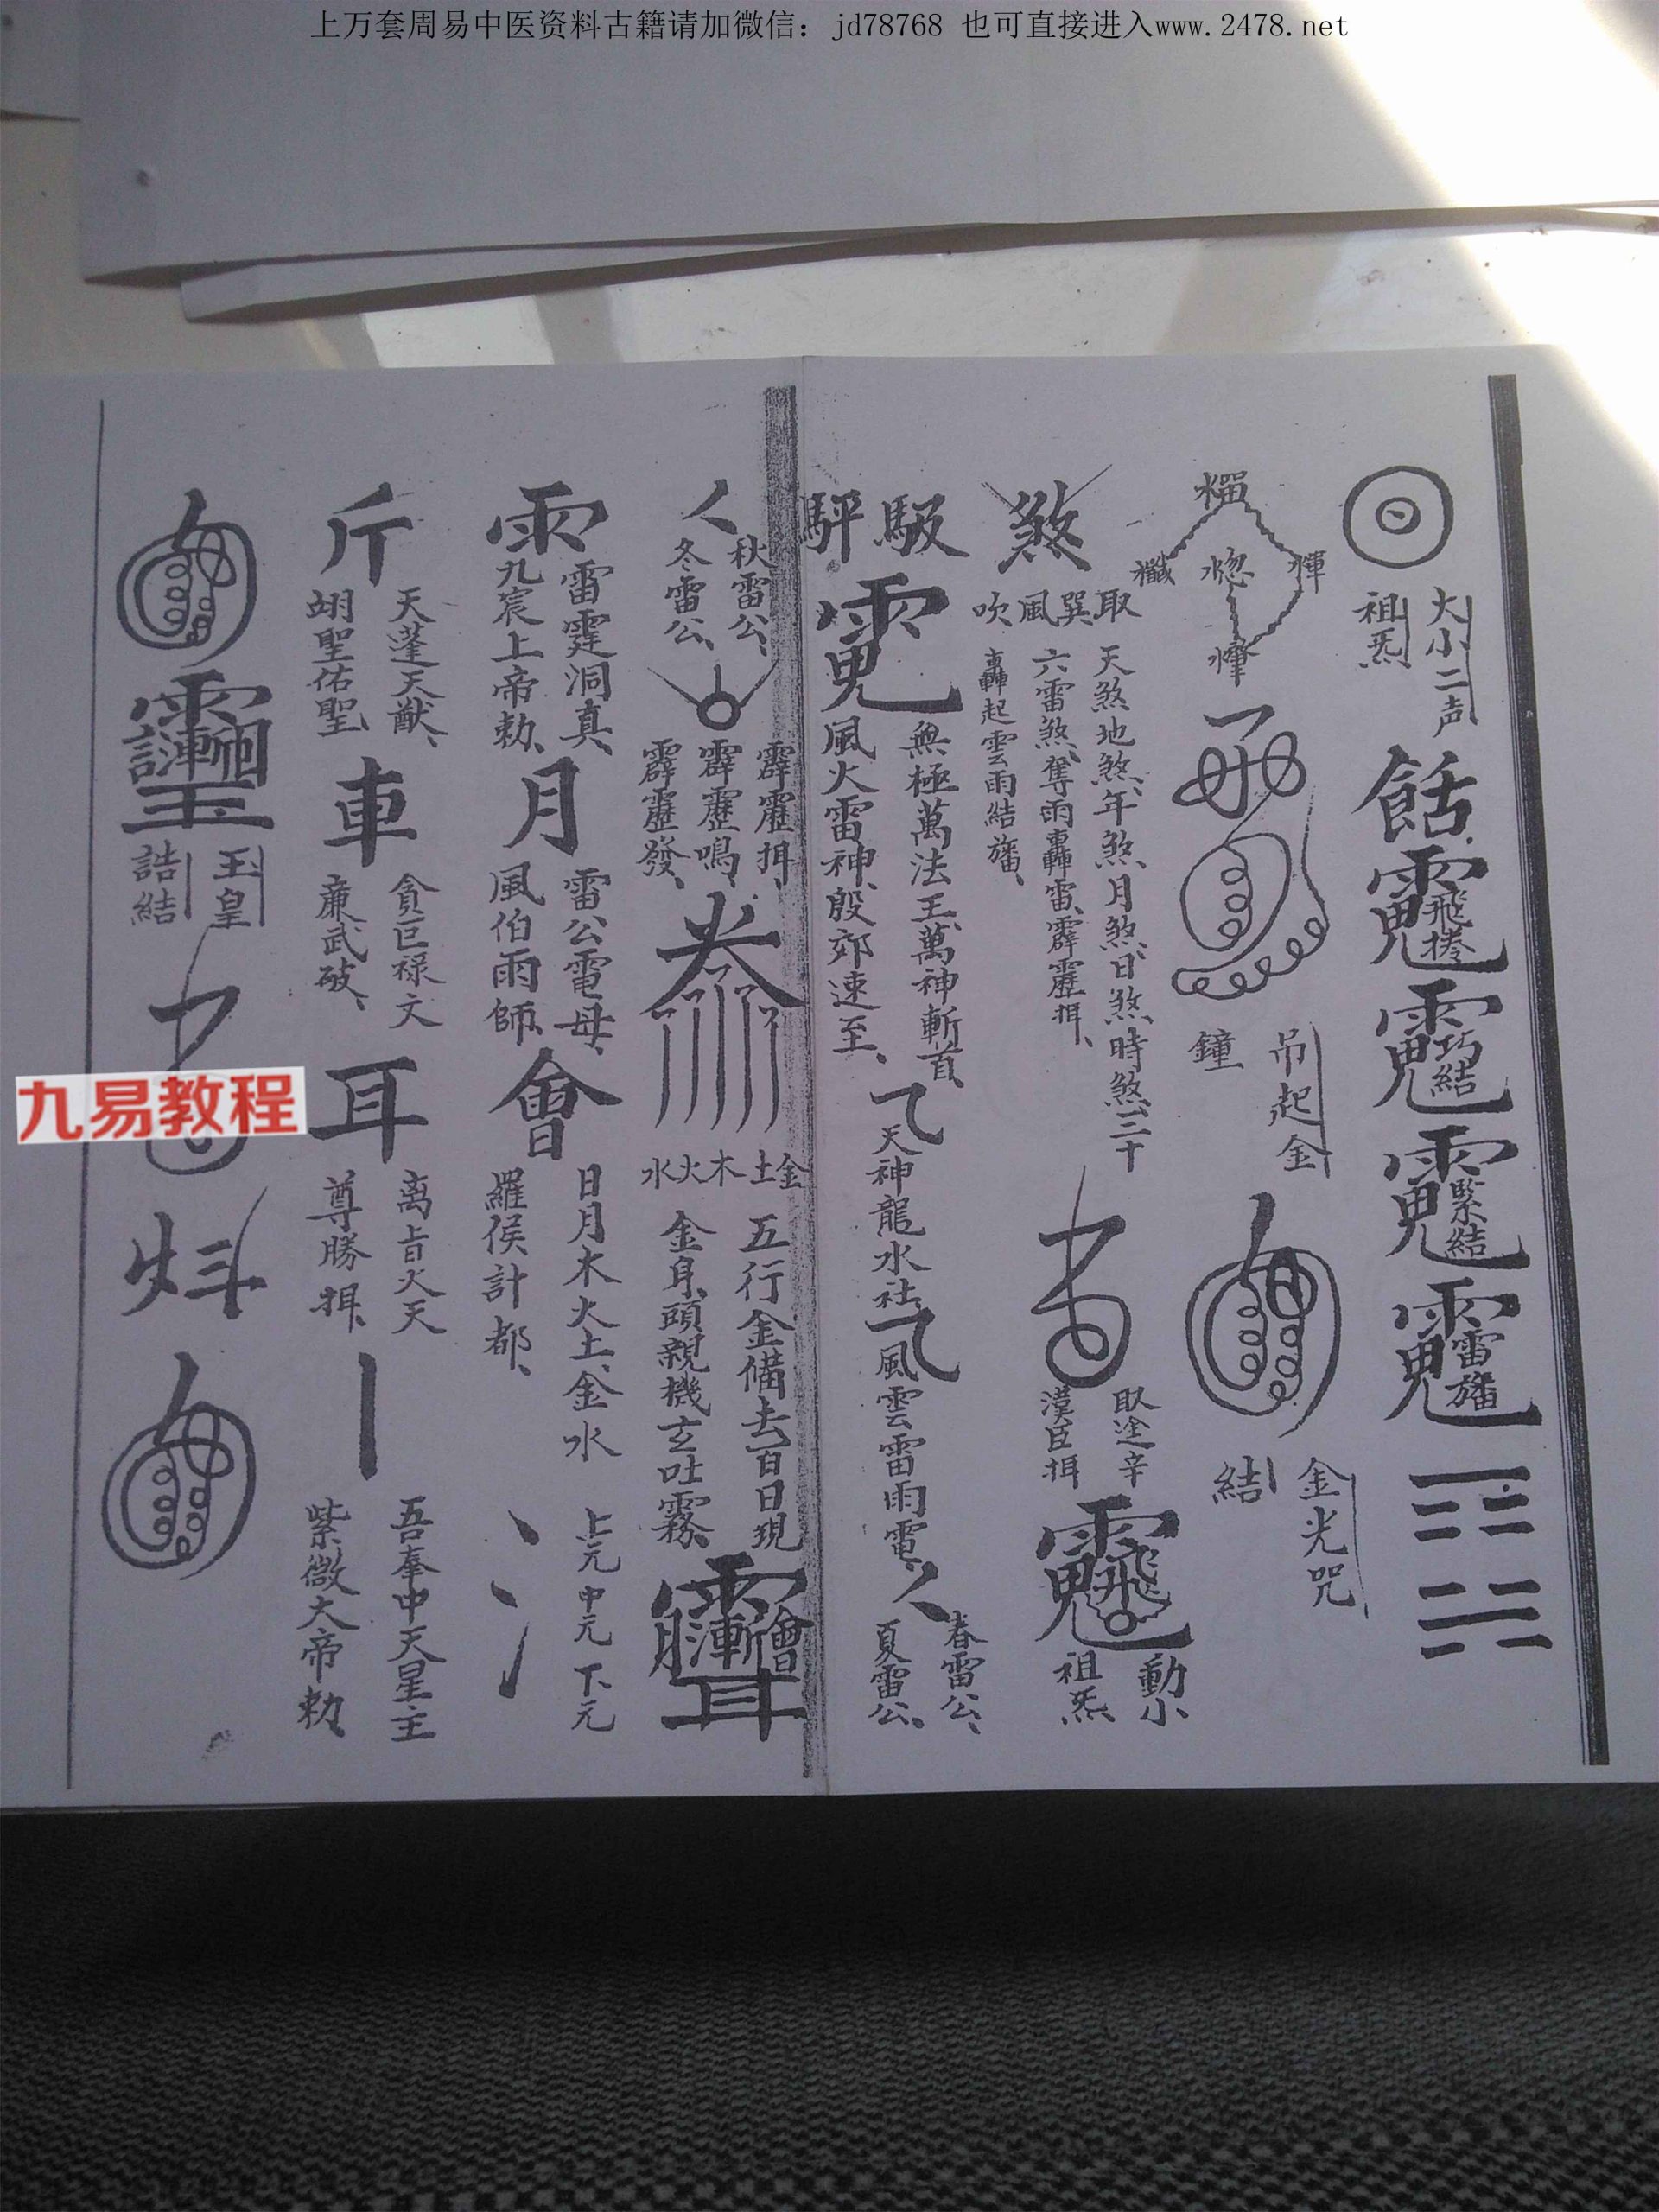 上万套周易中医资料古籍请加微信：jd78768 也可直接进入www.2478.net
大小二声
祖炁
飛捲
巧結
緊結
雷旛
吊起金
鐘
金光咒
結
煞
取巽風吹
天煞地煞、年煞、月煞、日煞時煞、三十
六雷煞、奪雨轟雷、霹靂揖、
轟起雲雨結旛、
動小
祖炁、
無極萬法王、萬神斬首、
風火雷神、殷郊速至、
天神龍水社、
風雲雷雨電、
春雷公、
夏雷公、
秋雷公、
冬雷公、
霹靂揖、
霹靂鳴、
霹靂發、
金土木火水
五行金備去百日現
金身、頭親機玄吐霧、
雨
雷霆洞真、
九宸上帝勅、
月
雷公電母、
風伯雨師、
會
日月木火土、金水
羅侯計都、
上元中元下元
斤
天蓬天猷、
翊聖佑聖
車
貪巨禄文
廉武破、
耳
尊勝揖、
吾奉中天星主
紫微大帝勅
玉皇
誥結
九易教程